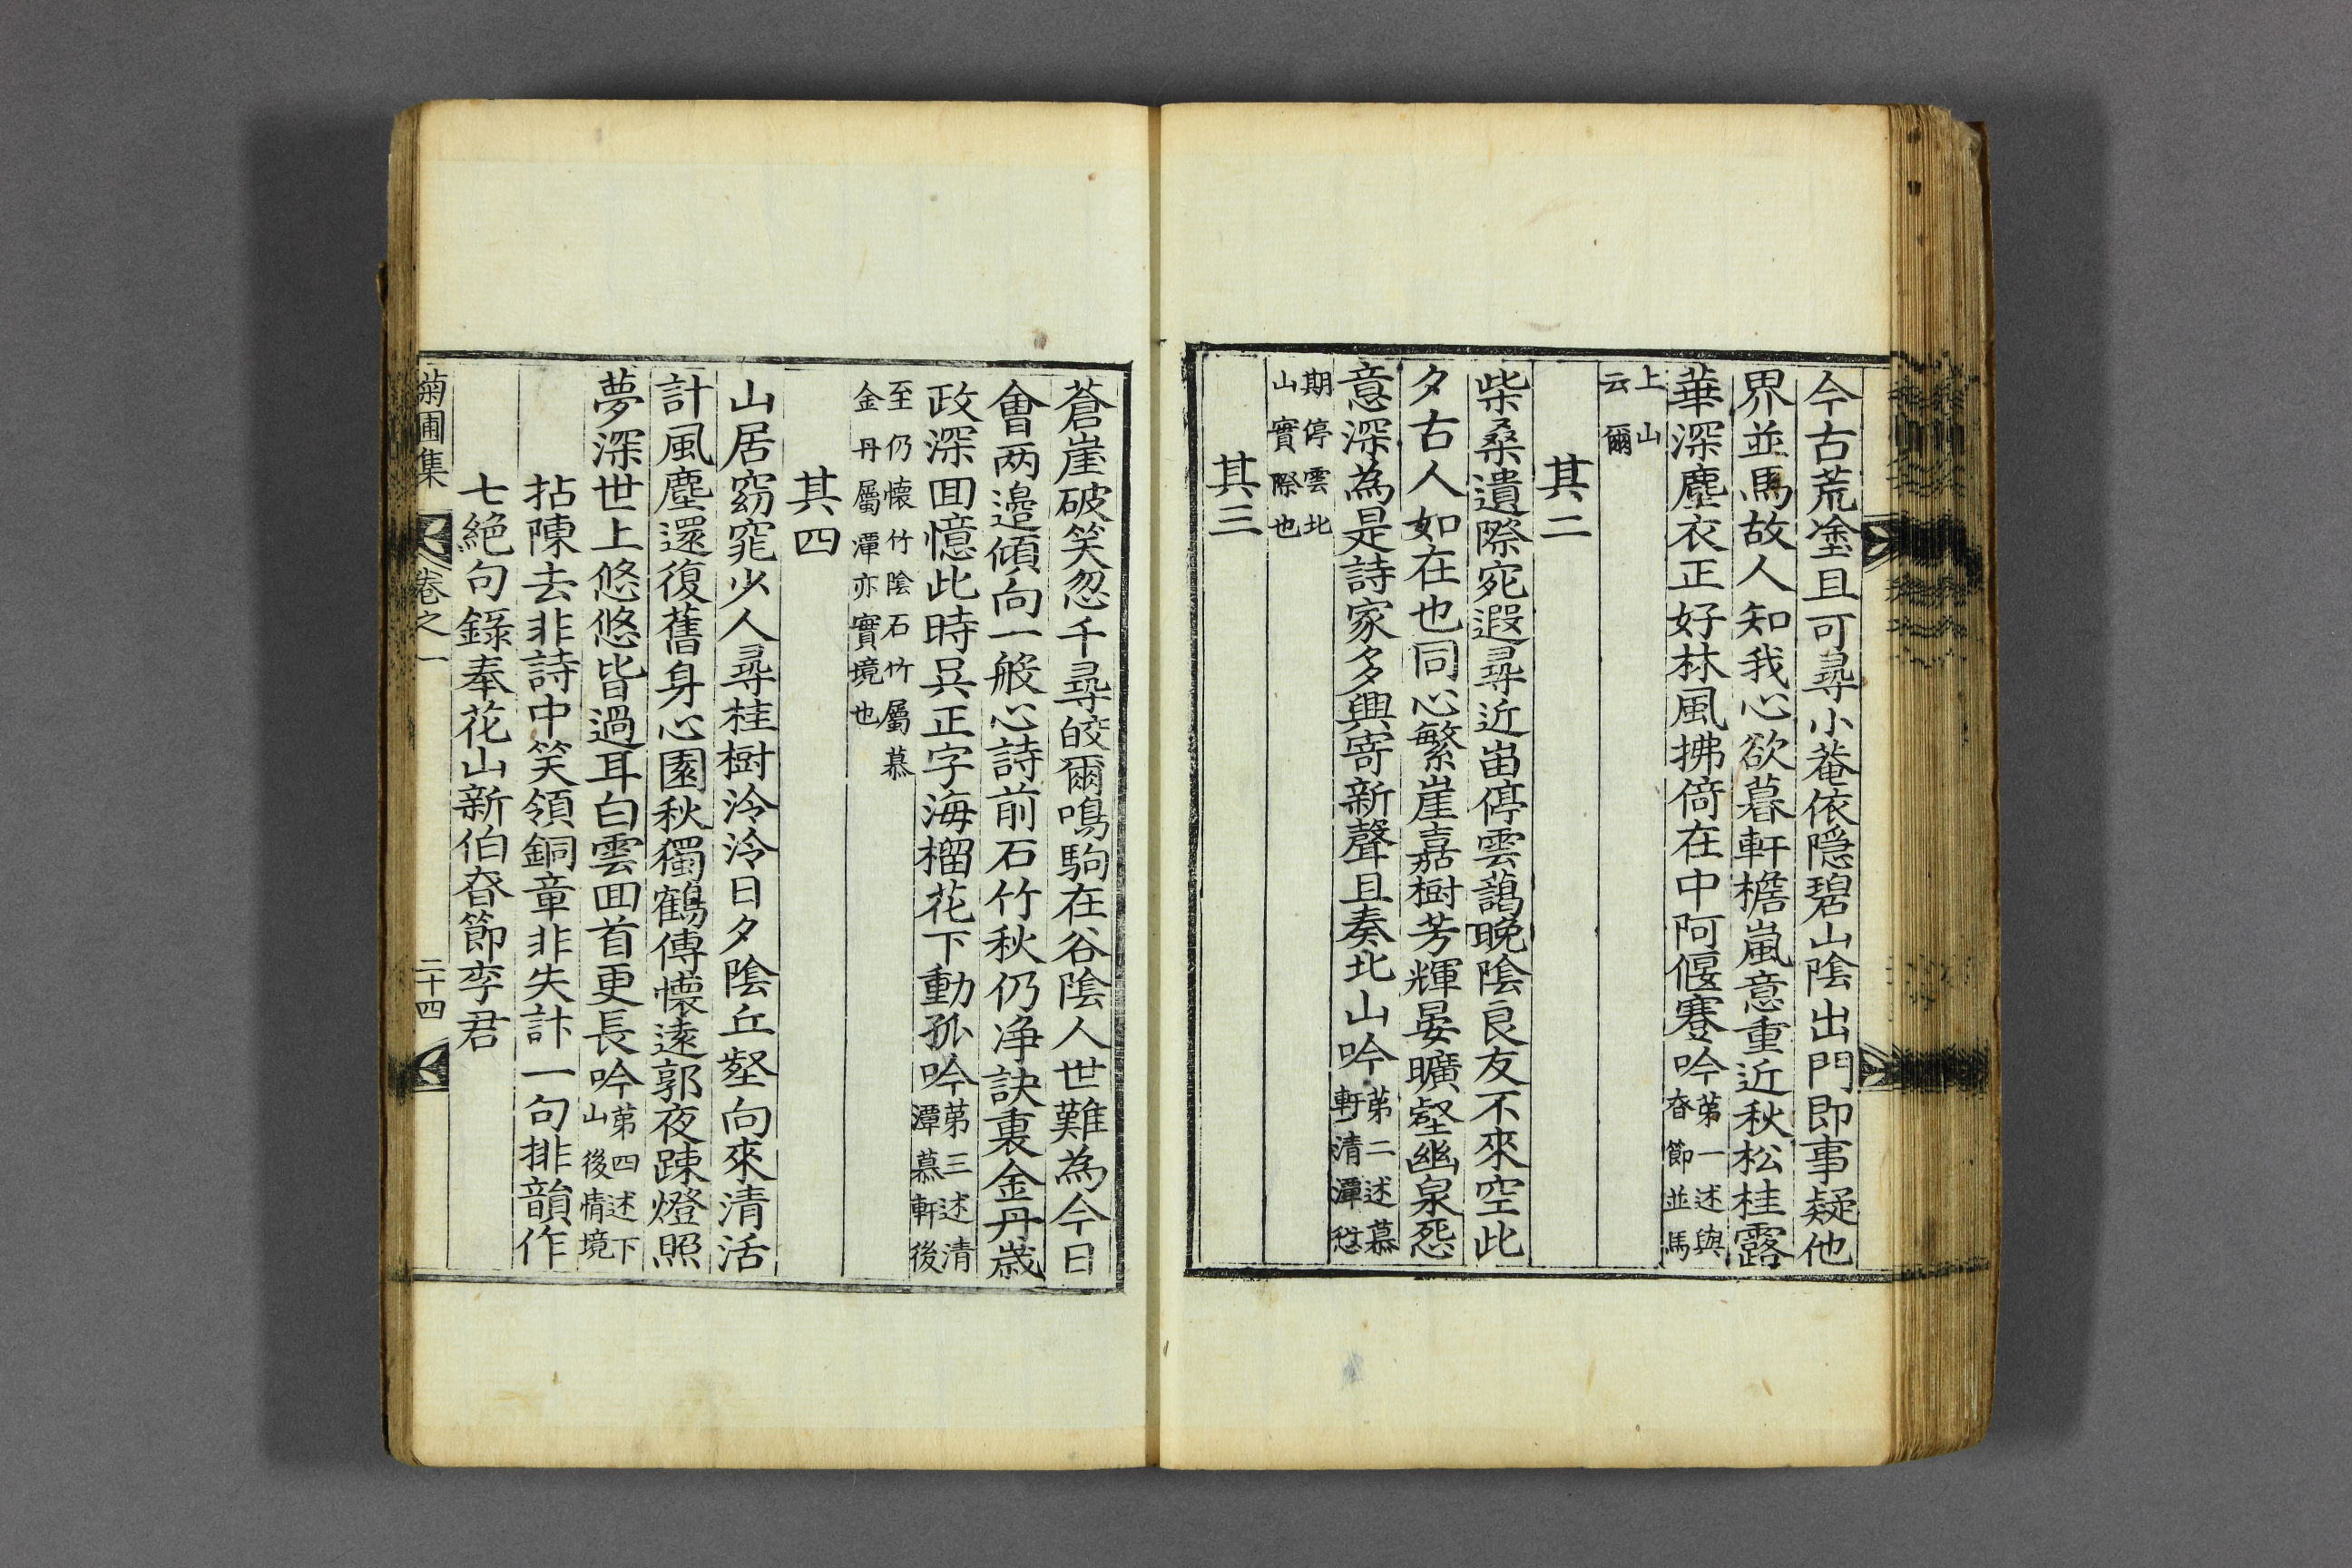 今古荒塗且可尋小菴依隱碧山陰出門即事疑他
界並馬故人知我心欲暮軒檐嵐意重近秋松桂露
華深塵衣正好林風拂倚在中阿偃蹇吟第一述與
春節並馬
上山
云爾
其二
柴桑遺際宛遐尋近峀停雲藹晚陰良友不來空此
夕古人如在也同心繁崖嘉樹芳輝晏曠壑幽泉怨
意深為是詩家多興寄新聲且奏北山吟第二述慕
軒清潭愆
期停雲北
山實際也
其三
蒼崖破笑忽千尋皎爾鳴駒在谷陰人世難為今日
會兩邊傾向一般心詩前石竹秋仍净訣裏金丹歲
政深囬憶此時吳正字海榴花下動孤吟第三述清
潭慕軒後
至仍懷竹陰石竹屬慕
金丹屬潭亦實境也
其四
山居窈窕少人尋桂樹泠泠日夕陰丘壑向來清活
計風塵還復舊身心園秋獨鶴傳懷遠郭夜踈燈照
夢深世上悠悠皆過耳白雲囬首更長吟第四述下
山後情境
拈陳去非詩中笑領銅章非失計一句排韻作
七絕句錄奉花山新伯春節李君
菊圃集 卷之一 二十四